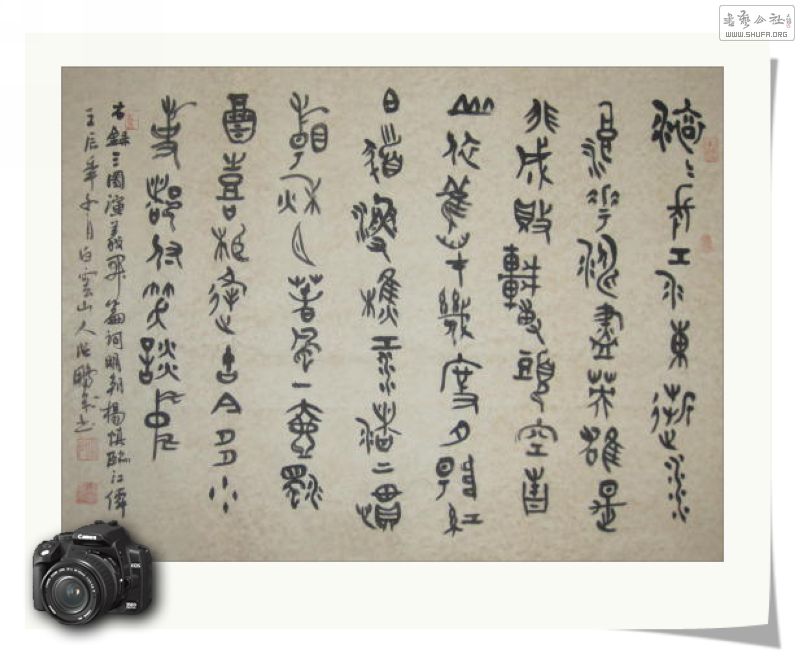 滾〻長江東逝水
浪花淘盡英雄是
非成敗轉頭空青
山依舊在幾度夕陽紅
白髮漁樵江渚上慣
看秋月春風一壺濁
酒喜相逢古今多少
事都付笑談中
右錄三國演義開篇詞明朝楊慎臨江僊
壬辰年月白雲山人書
書藝公社
WWW.SHUFA.ORG
Canon
EOS